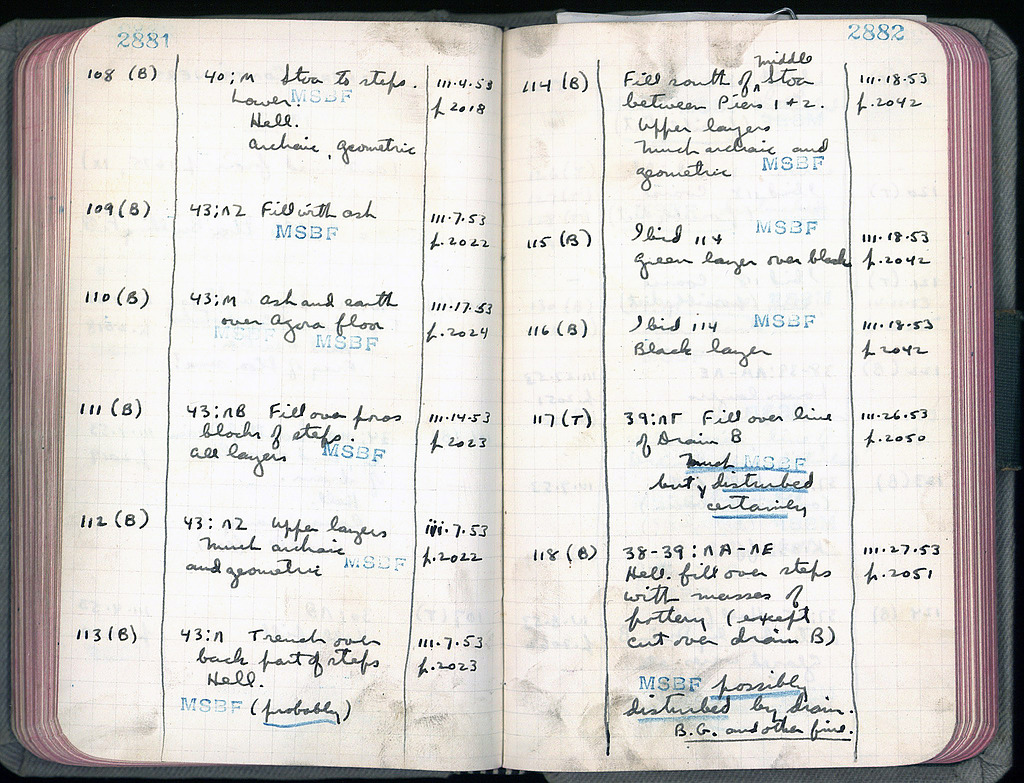 2881
108 (B) 40:M Stoa to steps. 111.4.53
Lower. MSBF p.2018
Hell.
archaic, geometric
109 (B) 43:ΛΖ Fill with ash 111.7.53
MSBF p.2022
110 (B) 43:M ash and earth 111.17.53
over Agora floor p.2024
MSBF MSBF
111 (B) 43:ΛΒ Fill over poros 111.14.53
blocks of steps. p.2023
all layers MSBF
112 (B) 43:ΛΖ Upper layers iii.7.53
Much archaic p.2022
and geometric MSBF
113 (B) 43:Λ Trench over 111.7.53
back part of steps p.2023
Hell.
MSBF (probably)
2882
114 (B) Fill south of middle Stoa 111.18.53
between Piers 1 + 2. p.2042
Upper layers
Much archaic and
geometric MSBF
115 (B) Ibid 114 MSBF 111.18.53
Green layer over black p.2042
116 (B) Ibid 114 MSBF 111.18.53
Black layer p.2042
117 (T) 39:ΛΓ Fill over line 111.26.53
of Drain B p.2050
Much MSBF
but disturbed
certainly
118 (B) 38-39:ΛΑ-ΛΕ 111.27.53
Hell. fill over steps p.2051
with masses of
pottery (except
cut over drain B)
MSBF possibly
disturbed by drain.
B.G. and other fine.